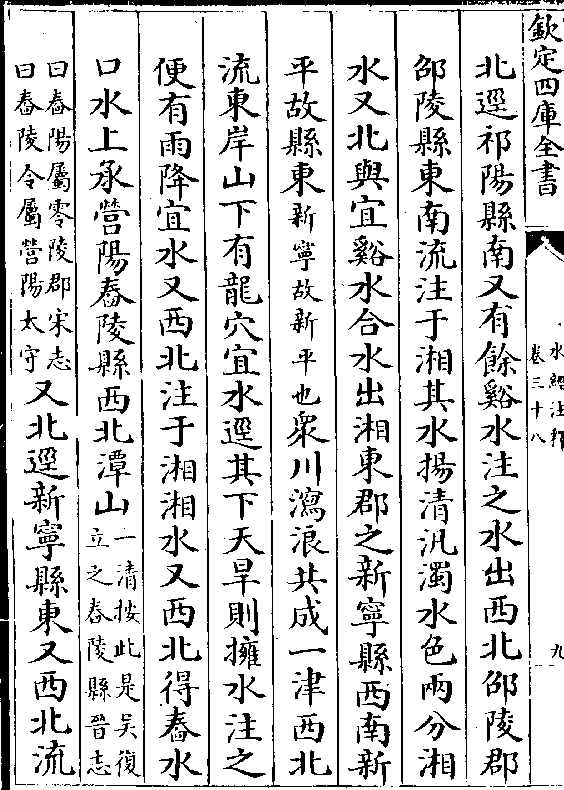 欽定四庫全書
水經注釋
卷三十八
九
北逕祁陽縣南又有餘谿水注之水出西北邵陵郡
邵陵縣東南流注于湘其水揚清汎濁水色兩分湘
水又北與宜谿水合水出湘東郡之新寧縣西南新
平故縣東新寧故新平也衆川瀉浪共成一津西北
流東岸山下有龍穴宜水逕其下天旱則擁水注之
便有雨降宜水又西北注于湘湘水又西北得舂水
口水上承營陽舂陵縣西北潭山一清按此是吳復
立之舂陵縣晉志
曰舂陽屬零陵郡宋志
曰舂陵令屬營陽太守又北逕新寧縣東又西北流